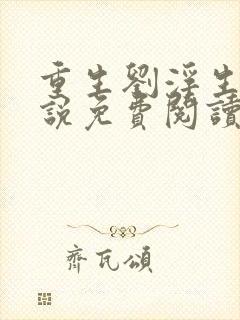 重生劉淫生
說免費閱讀
齊瓦頌